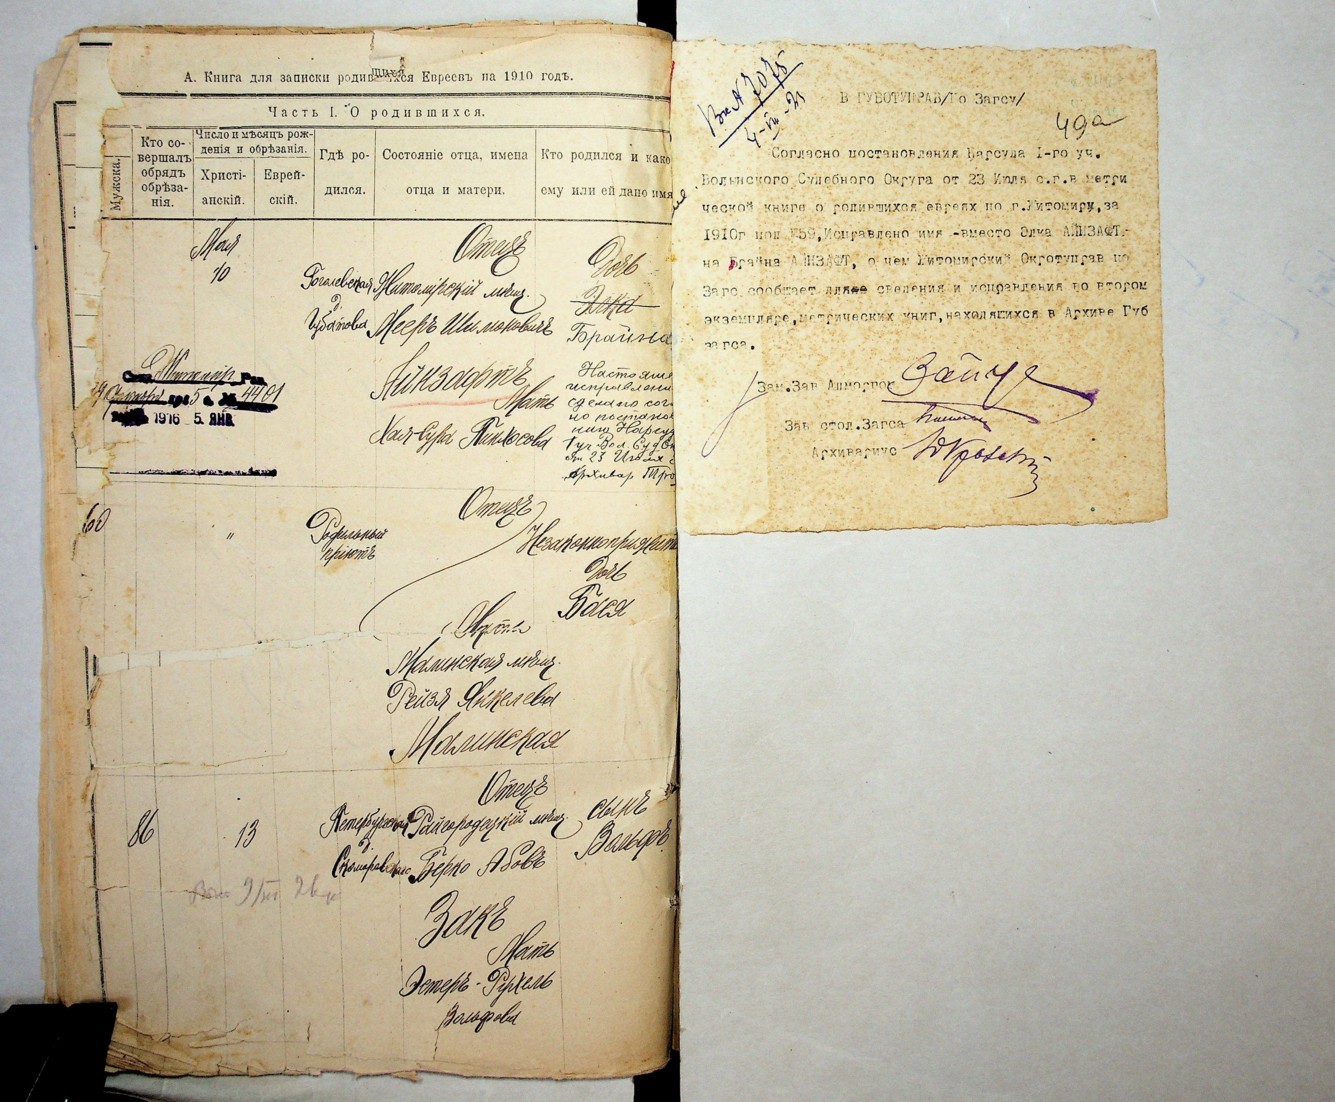 А. Книга для записки родившихся Евреевъ на 1910 годъ.
Часть I. О родившихся.
Мужска.
Кто со-
вершалъ
обрядъ
обрѣза-
нія.
Число и мѣсяцъ рож-
денія и обрѣзанія.
Христі-
анскій.
Еврей-
скій.
Гдѣ ро-
дился.
Состояніе отца, имена
отца и матери.
Кто родился и како
ему или ей дано имя
Мая
10
Гоголевская
д.
Отецъ
Житомірскій мѣщ.
Мееръ Шимоновичъ
Айнзафтъ
Мать
Хая-Сура Пинхосова
Дочь
Элка
Брайна
Настояще
исправлени
сдѣлано сог
но постано
нія Нарсу
1 уч. Вол. Суд. Ок
от 23 Июля
Архивар
1916 5. ЯНВ.
60
"
Родильный
пріютъ
Отецъ
Незаконнорожд
Дочь
Бася
Мать
Малинская мѣщ.
Рейзя Янкелева
Малинская
86
13
Петербургская
д.
Отецъ
Райгородецкій мѣщ.
Берко Абовъ
Закъ
Мать
Эстеръ-Рухель
Вольфова
сынъ
Вольфъ
Вх № 7075
4-VIII-25
49а
В ГУБОТУПРАВ/По Загсу/
Согласно постановления Нарсуда I-го уч.
Волынского Судебного Округа от 23 Июля с.г. в метри
ческой книге о родившихся евреях по г.Житомиру, за
1910г под №59, Исправлено имя -вместо Элка АЙНЗАФТ-
на Брайна АЙНЗАФТ, о чем Житомирский Окротуправ по
Загс сообщает для сведения и исправления во втором
экземпляре, метрических книг, находящихся в Архиве Губ
загса.
Зам.Зав Админотдел
Зав стол.Загса
Архивариус